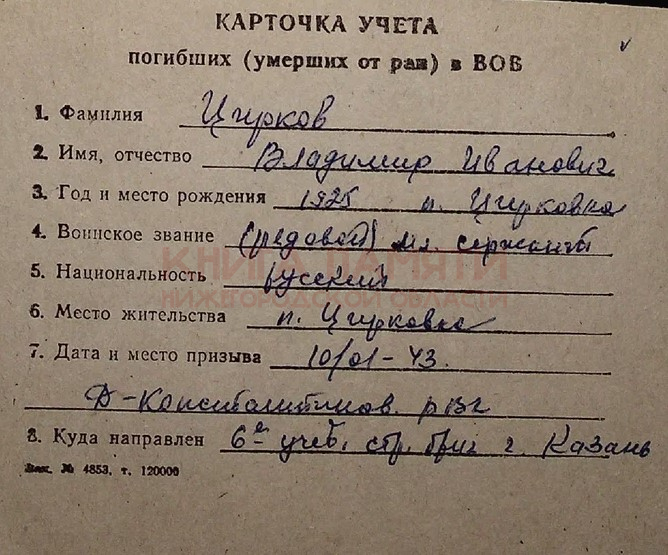 КАРТОЧКА УЧЕТА
погибших (умерших от ран) в ВОВ
1. Фамилия Цгурков
2. Имя, отчество Владимир Иванович
3. Год и место рождения 1925 п. Цгурковка
4. Воинское звание (рядовой) мл. сержант
КНИГА ПАМЯТИ
5. Национальность русский
НИЖЕГОРОДСКОЙ ОБЛАСТИ
6. Место жительства п. Цгурковка
7. Дата и место призыва 10/01-43.
Д-Константинов. рвк
8. Куда направлен 6й учеб. стр. бриг г. Казань
Зак. № 4853, т. 120000